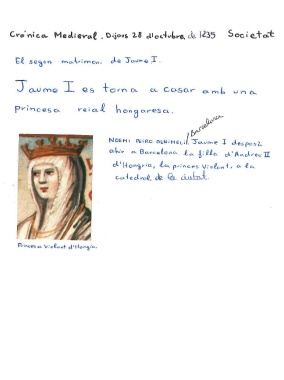 Crónica Medieval. Dijous 28 d'octubre de 1235 Societat
El segon matrimoni de Jaume I.
Jaume I es torna a casar amb una
princesa reial hongaresa.
NOEMI Barcelona Jaume I desposà
ahir a Barcelona la filla d'Andreu II
d'Hongria, la princesa Violant, a la
catedral de la ciutat.
Princesa Violant d'Hongria